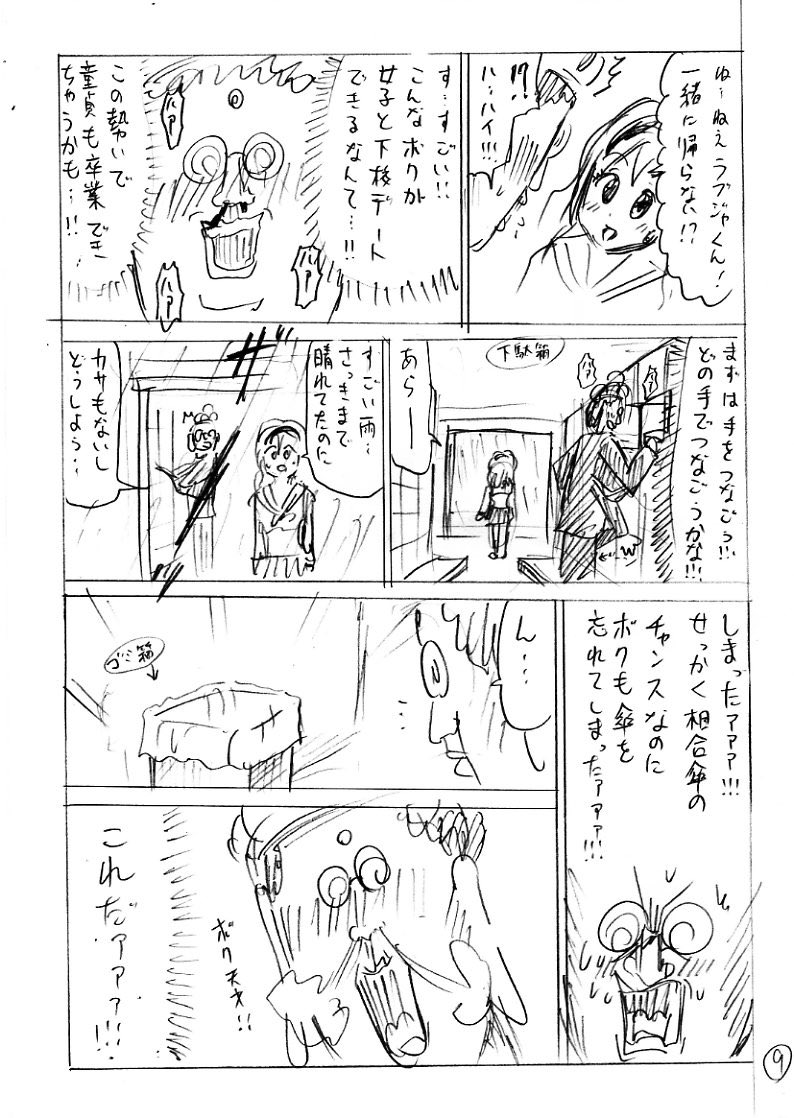 ねーねえラブジャくん!
一緒に帰らない!?
!?
ハ…ハイ!!!
す…すごい!!
こんなボクが
女子と下校デート
できるなんて…!!
ハァ
ハァ
ハァ
この勢いで
童貞も卒業でき
ちゃうかも…!!
まずは手をつなごう!!
どの手でつなごうかな!!!
ハァ
ハァ
下駄箱
あらー
ザ
すごい雨…
さっきまで
晴れてたのに
カサもないし
どうしよう…
しまったァァァ!!!
せっかく相合傘の
チャンスなのに
ボクも傘を
忘れてしまったァァァ!!!
ん…
ゴミ箱
これだァァァ!!!
ボク天才!!
9